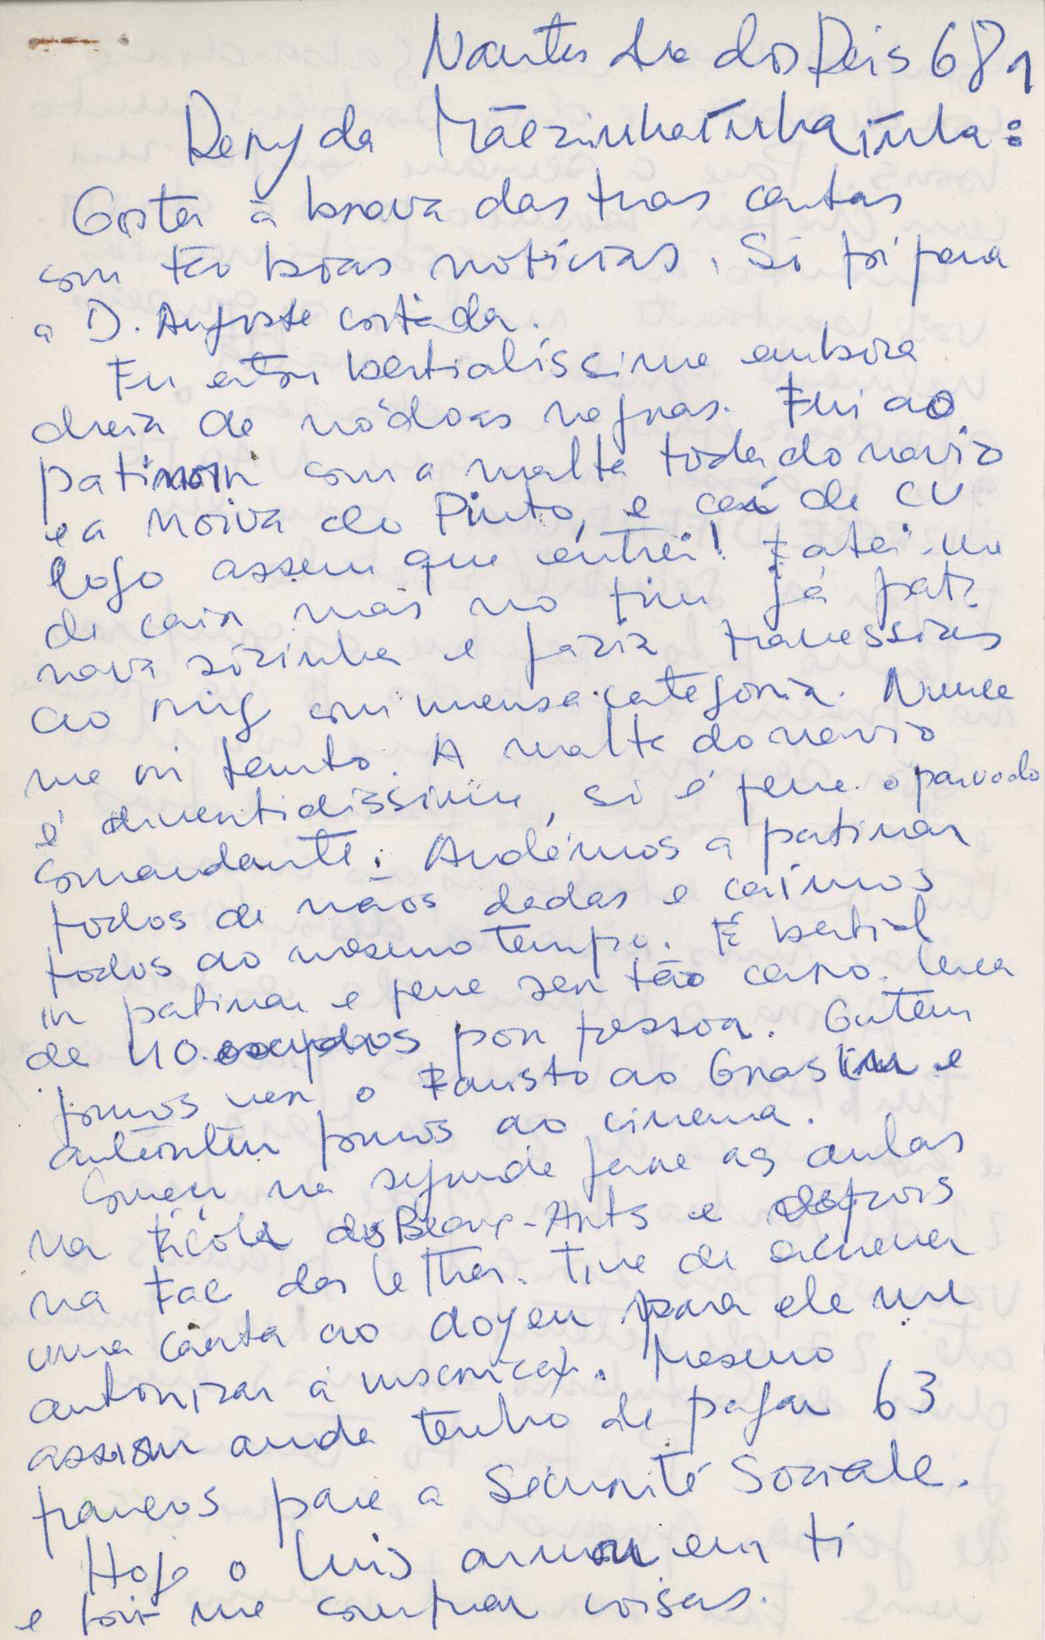 Nantes dia dos Reis 68 1
Mãezinhainhainha:
Gostei à brava das tuas cartas
com tão boas notícias. Só foi pena
a D. Augusta coitada.
Eu estou bestialíssima embora
cheia de nódoas negras. Fui ao
patinoir com a malta toda do navio
e a noiva do Pinto, e caí de cu
logo assim que entrei! Fatei-me
de cair mas no fim já pati
nava sozinha e fazia travessias
ao ring com imensa categoria. Nunca
me ri tanto. A malta do navio
é divertidíssima, só é pena o parvo do
comandante. Andámos a patinar
todos de mãos dadas e caímos
todos ao mesmo tempo. É bestial
ir patinar e pena ser tão caro. Cerca
de 40 escudos por pessoa. Ontem
fomos ver o Fausto ao Graslin e
anteontem fomos ao cinema.
Começam na segunda feira as aulas
na École des Beaux-Arts e depois
na Fac des Lettres. Tive de escrever
uma carta ao doyen para ele me
autorizar a inscrição. Mesmo
assim ainda tenho de pagar 63
francos para a Sécurité Sociale.
Hoje o Luis armou em ti
e foi-me comprar coisas.